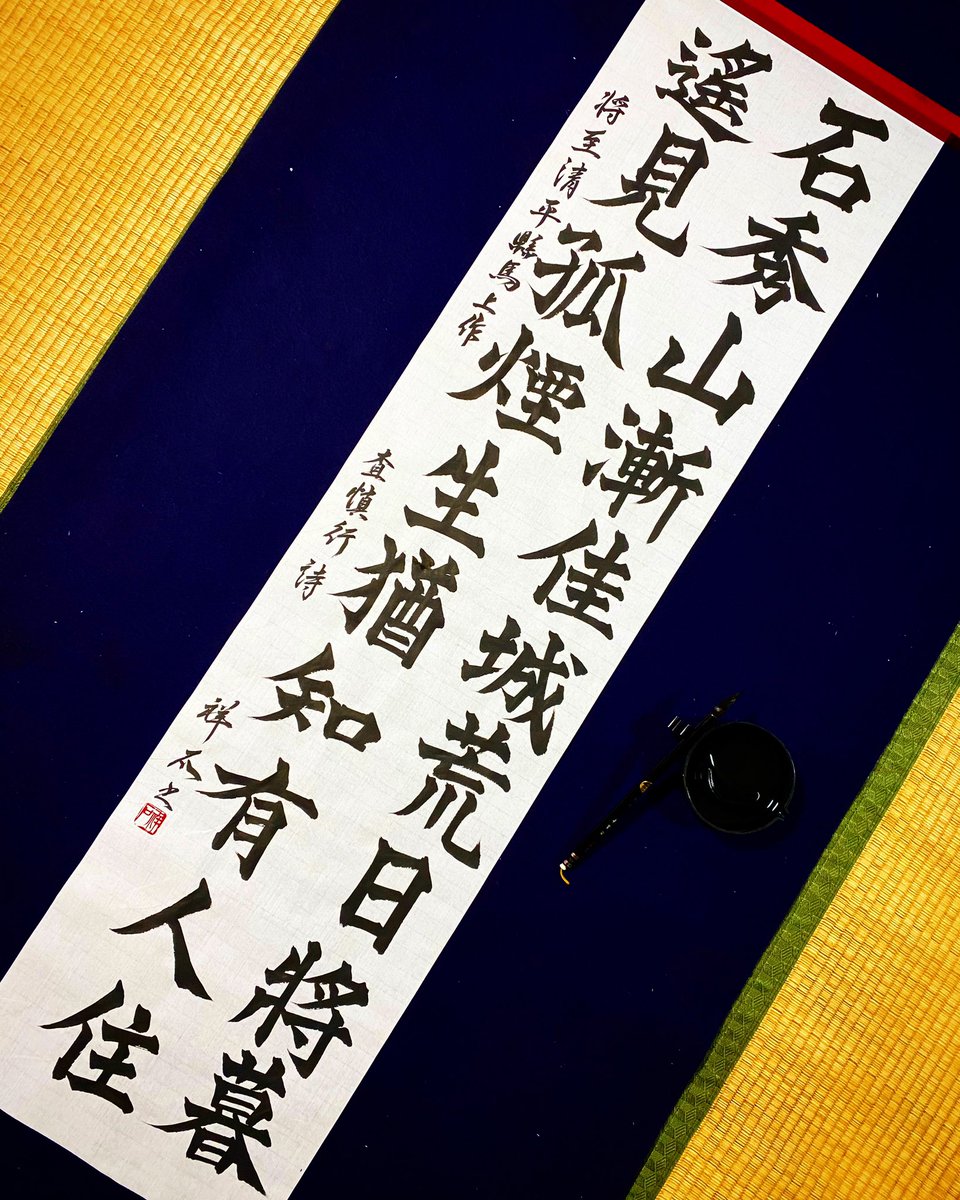 石秀山漸佳城荒日將暮
遙見孤煙生猶知有人住
將至清平縣馬上作　查慎行詩　祥石書